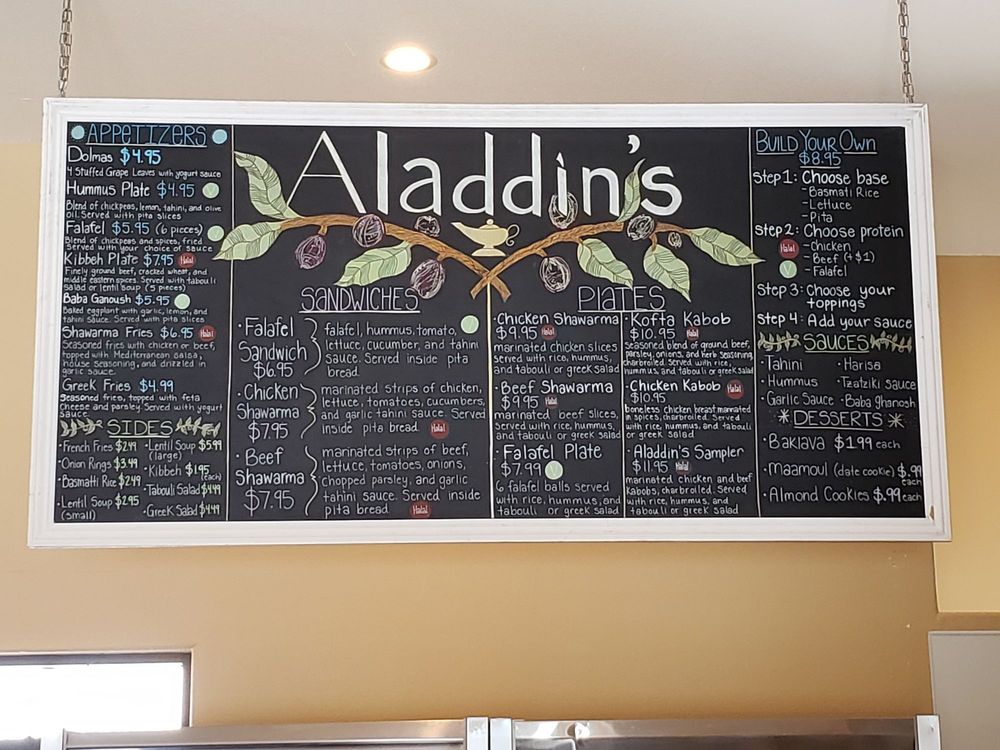 Aladdin's
APPETIZERS
Dolmas $4.95
4 Stuffed Grape Leaves with yogurt sauce
Hummus Plate $4.95 V
Blend of chickpeas, lemon, tahini, and olive
oil. Served with pita slices
Falafel $5.95 (6 pieces)
Blend of chickpeas and spices, fried
Served with your choice of sauce
Kibbeh Plate $7.95 Halal
Finely ground beef, cracked wheat, and
middle eastern spices. Served with tabouli
salad or lentil soup (5 pieces)
Baba Ganoush $5.95
Baked eggplant with garlic, lemon, and
tahini sauce. Served with pita slices
Shawarma Fries $6.95 Halal
Seasoned fries with chicken or beef,
topped with Mediterranean salsa,
house seasoning, and drizzled in
garlic sauce.
Greek Fries $4.99
Seasoned fries, topped with feta
cheese and parsley. Served with yogurt
sauce
SIDES
· French Fries $2.49
· Onion Rings $3.49
· Basmatti Rice $2.49
· Lentil Soup $2.95
(small)
· Lentil Soup $5.99
(large)
· Kibbeh $1.95
(each)
· Tabouli Salad $4.49
· Greek Salad $4.49
SANDWICHES
· Falafel
Sandwich
$6.95
falafel, hummus, tomato,
lettuce, cucumber, and tahini
sauce. Served inside pita
bread.
· Chicken
Shawarma
$7.95
marinated strips of chicken,
lettuce, tomatoes, cucumbers,
and garlic tahini sauce. Served
inside pita bread. Halal
· Beef
Shawarma
$7.95
marinated strips of beef,
lettuce, tomatoes, onions,
chopped parsley, and garlic
tahini sauce. Served inside
pita bread Halal
PLATES
· Chicken Shawarma
$9.95 Halal
marinated chicken slices
served with rice, hummus,
and tabouli or greek salad
· Beef Shawarma
$9.95 Halal
marinated beef slices,
served with rice, hummus,
and tabouli or greek salad
· Falafel Plate
$7.99 V
6 falafel balls served
with rice, hummus, and
tabouli or greek salad
· Kofta Kabob
$10.95 Halal
seasoned blend of ground beef,
parsley, onions, and herb seasoning,
charbroiled. Served with rice,
hummus, and tabouli or greek salad
· Chicken Kabob Halal
$10.95
boneless chicken breast marinated
in spices, charbroiled. Served
with rice, hummus, and tabouli
or greek salad
· Aladdin's Sampler
$11.95 Halal
marinated chicken and beef
Kabobs, charbroiled. Served
with rice, hummus, and
tabouli or greek salad
BUILD YOUR OWN
$8.95
Step 1: Choose base
- Basmati Rice
- Lettuce
- Pita
Step 2: Choose protein
Halal - Chicken
- Beef (+$1)
V - Falafel
Step 3: Choose your
toppings
Step 4: Add your sauce
SAUCES
· Tahini
· Hummus
· Garlic Sauce
· Harisa
· Tzatziki sauce
· Baba ghanosh
DESSERTS
· Baklava $1.99 each
· Maamoul (date cookie) $.99
each
· Almond Cookies $.99 each